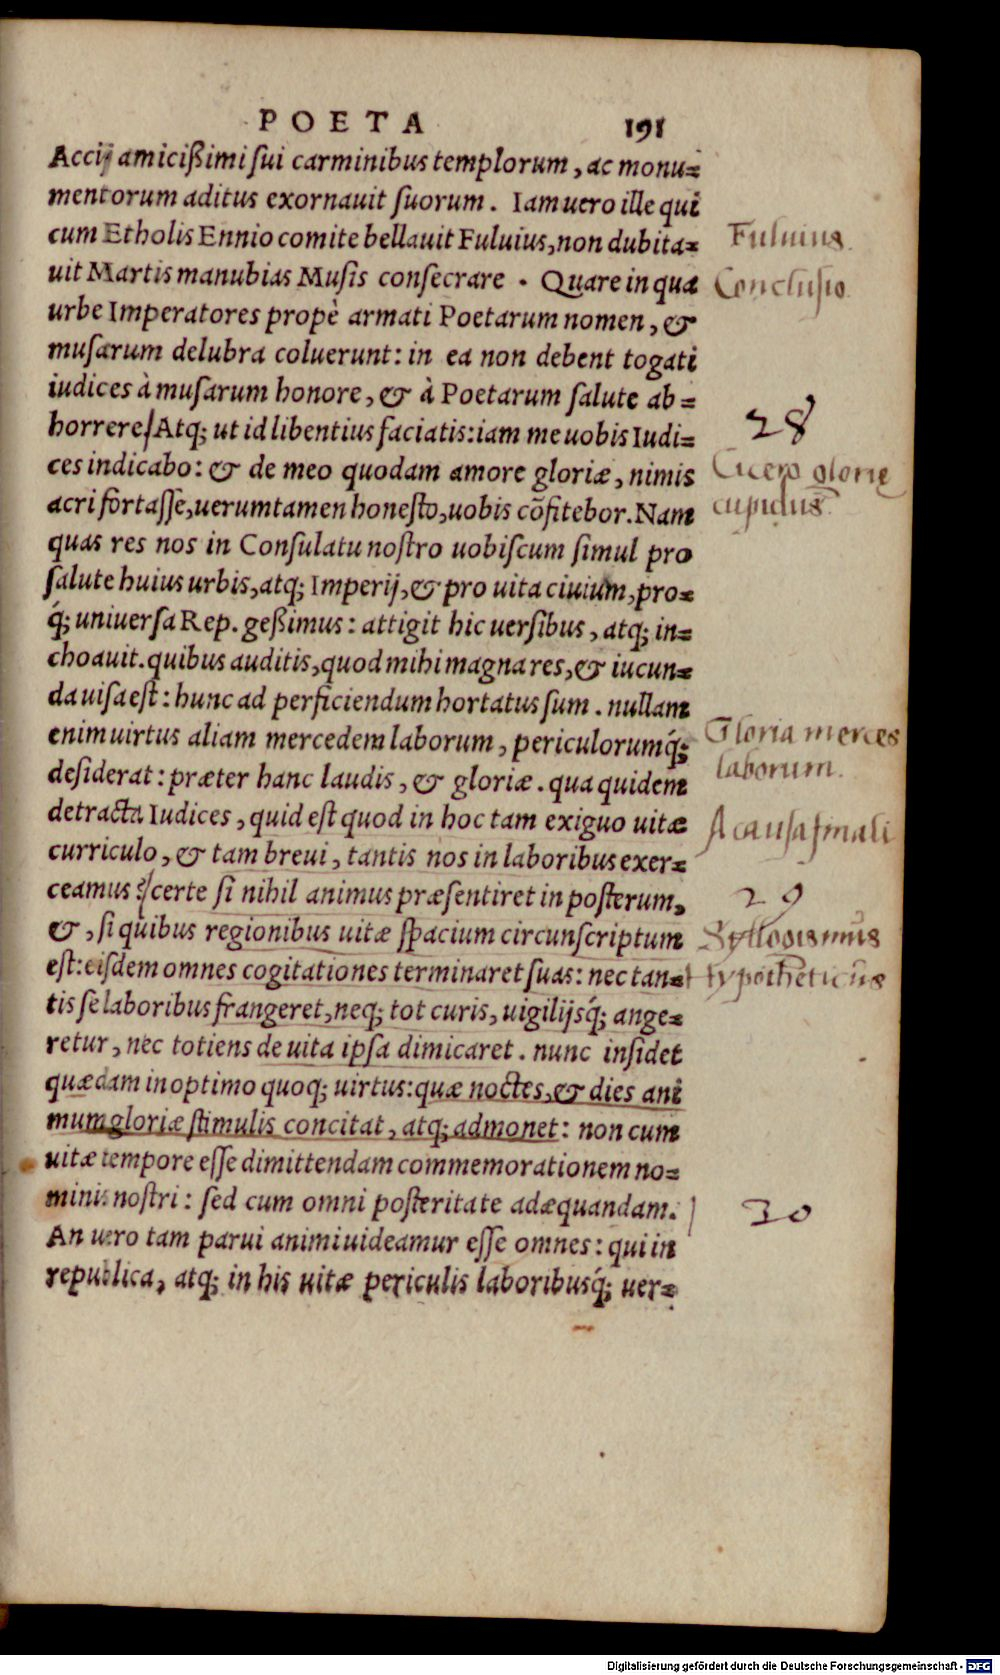 POETA 191
Accij amicißimi sui carminibus templorum, ac monu=
mentorum aditus exornauit suorum. Iam uero ille qui
cum Etholis Ennio comite bellauit Fuluius, non dubita=
uit Martis manubias Musis consecrare. Quare in qua
urbe Imperatores propè armati Poetarum nomen, &
musarum delubra coluerunt: in ea non debent togati
iudices à musarum honore, & à Poetarum salute ab=
horrere/Atq; ut id libentius faciatis: iam me uobis Iudi=
ces indicabo: & de meo quodam amore gloriæ, nimis
acri fortasse, uerumtamen honesto, uobis cōfitebor. Nam
quas res nos in Consulatu nostro uobiscum simul pro
salute huius urbis, atq; Imperij, & pro uita ciuium, pro=
q́; uniuersa Rep. geßimus: attigit hic uersibus, atq; in=
choauit. quibus auditis, quod mihi magna res, & iucun=
da uisa est: hunc ad perficiendum hortatus sum. nullam
enim uirtus aliam mercedem laborum, periculorumq́;
desiderat: præter hanc laudis, & gloriæ. qua quidem
detracta Iudices, quid est quod in hoc tam exiguo uitæ
curriculo, & tam breui, tantis nos in laboribus exer=
ceamus?/certe si nihil animus præsentiret in posterum,
&, si quibus regionibus uitæ spacium circunscriptum
est: eisdem omnes cogitationes terminaret suas: nec tan=
tis se laboribus frangeret, neq; tot curis, uigilijsq́; ange=
retur, nec totiens de uita ipsa dimicaret. nunc insidet
quædam in optimo quoq; uirtus: quæ noctes, & dies ani
mum gloriæ stimulis concitat, atq; admonet: non cum
uitæ tempore esse dimittendam commemorationem no=
minis nostri: sed cum omni posteritate adæquandam.
An uero tam parui animi uideamur esse omnes: qui in
republica, atq; in his uitæ periculis laboribusq́; uer=
Fuluius.
Conclusio.
28
Cicero glorię
cupidus.
Gloria merces
laborum.
A causa finali
29
Syllogismus
hypotheticus
30
Digitalisierung gefördert durch die Deutsche Forschungsgemeinschaft - DFG